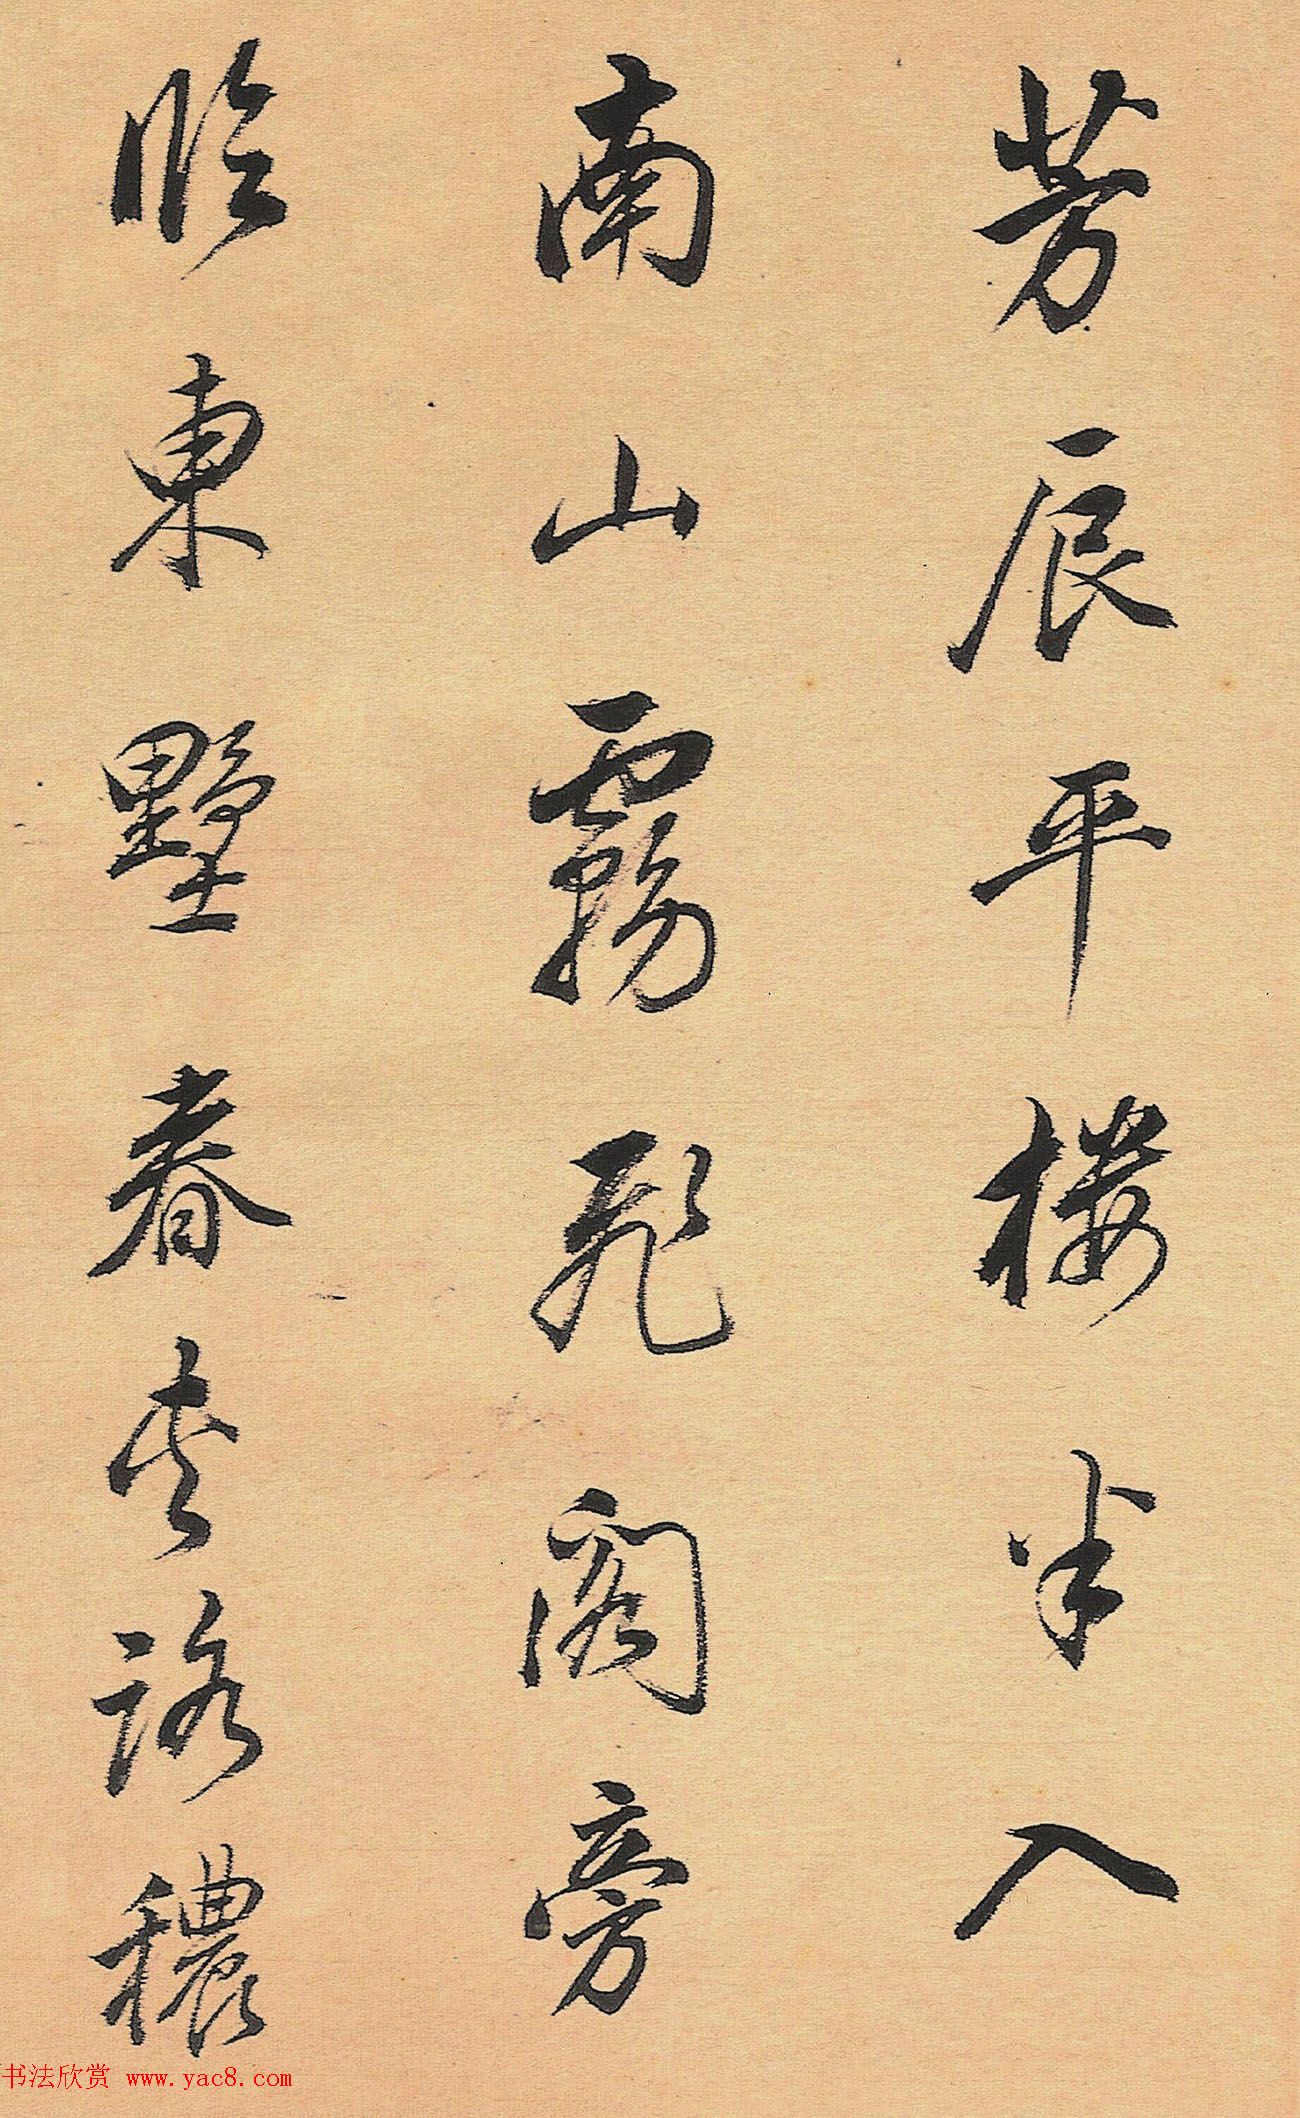 芳辰平楼半入
南山霧飛閣旁
臨東墅春夹路穠
书法欣赏 www.yac8.com